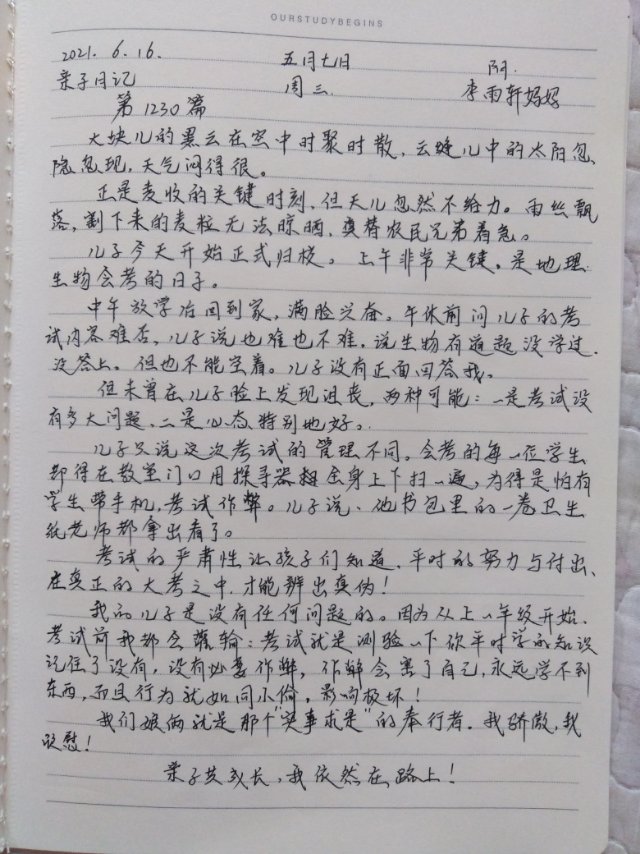 OURSTUDYBEGINS
2021. 6. 16. 五月七日 阴.
亲子日记 周三 李雨轩妈妈
第1230篇
大块儿的黑云在空中时聚时散,云缝儿中的太阳忽
隐忽现,天气闷得很。
正是麦收的关键时刻,但天儿忽然不给力。雨丝飘
落,割下来的麦粒无法晾晒,真替农民兄弟着急。
儿子今天开始正式归校。上午非常关键。是地理.
生物会考的日子。
中午放学后回到家,满脸兴奋。午休前问儿子的考
试内容难否,儿子说也难也不难,说生物有道题没学过.
没答上。但也不能空着。儿子没有正面回答我。
但未曾在儿子脸上发现沮丧,两种可能:一是考试没
有多大问题、二是心态特别地好。
儿子只说这次考试的管理不同。会考的每一位学生
都得在教室门口用探寻器全身上下扫一遍,为得是怕有
学生带手机,考试作弊。儿子说、他书包里的一卷卫生
纸老师都拿出看了。
考试的严肃性让孩子们知道,平时的努力与付出、
在真正的大考之中,才能辨出真伪!
我的儿子是没有任何问题的。因为从上一年级开始.
考试前我都会灌输:考试就是测验一下你平时学的知识
记住了没有,没有必要作弊,作弊会害了自己,永远学不到
东西,而且行为就如同小偷,影响极坏!
我们娘俩就是那个“实事求是”的奉行者。我骄傲,我
欣慰!
亲子共成长,我依然在路上!